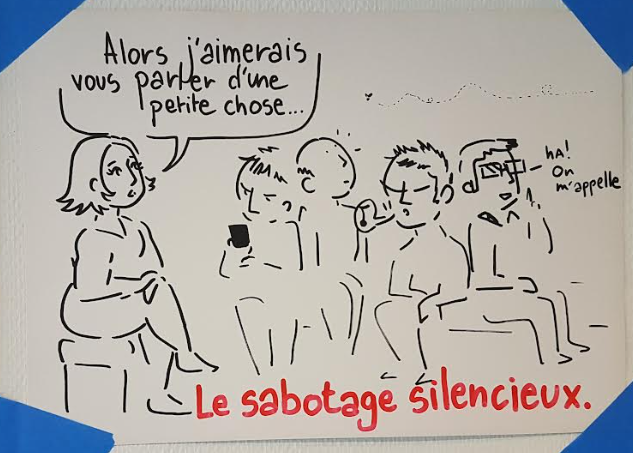 Alors j'aimerais
vous parler d'une
petite chose...
hA!
On
m'appelle
Le sabotage silencieux.